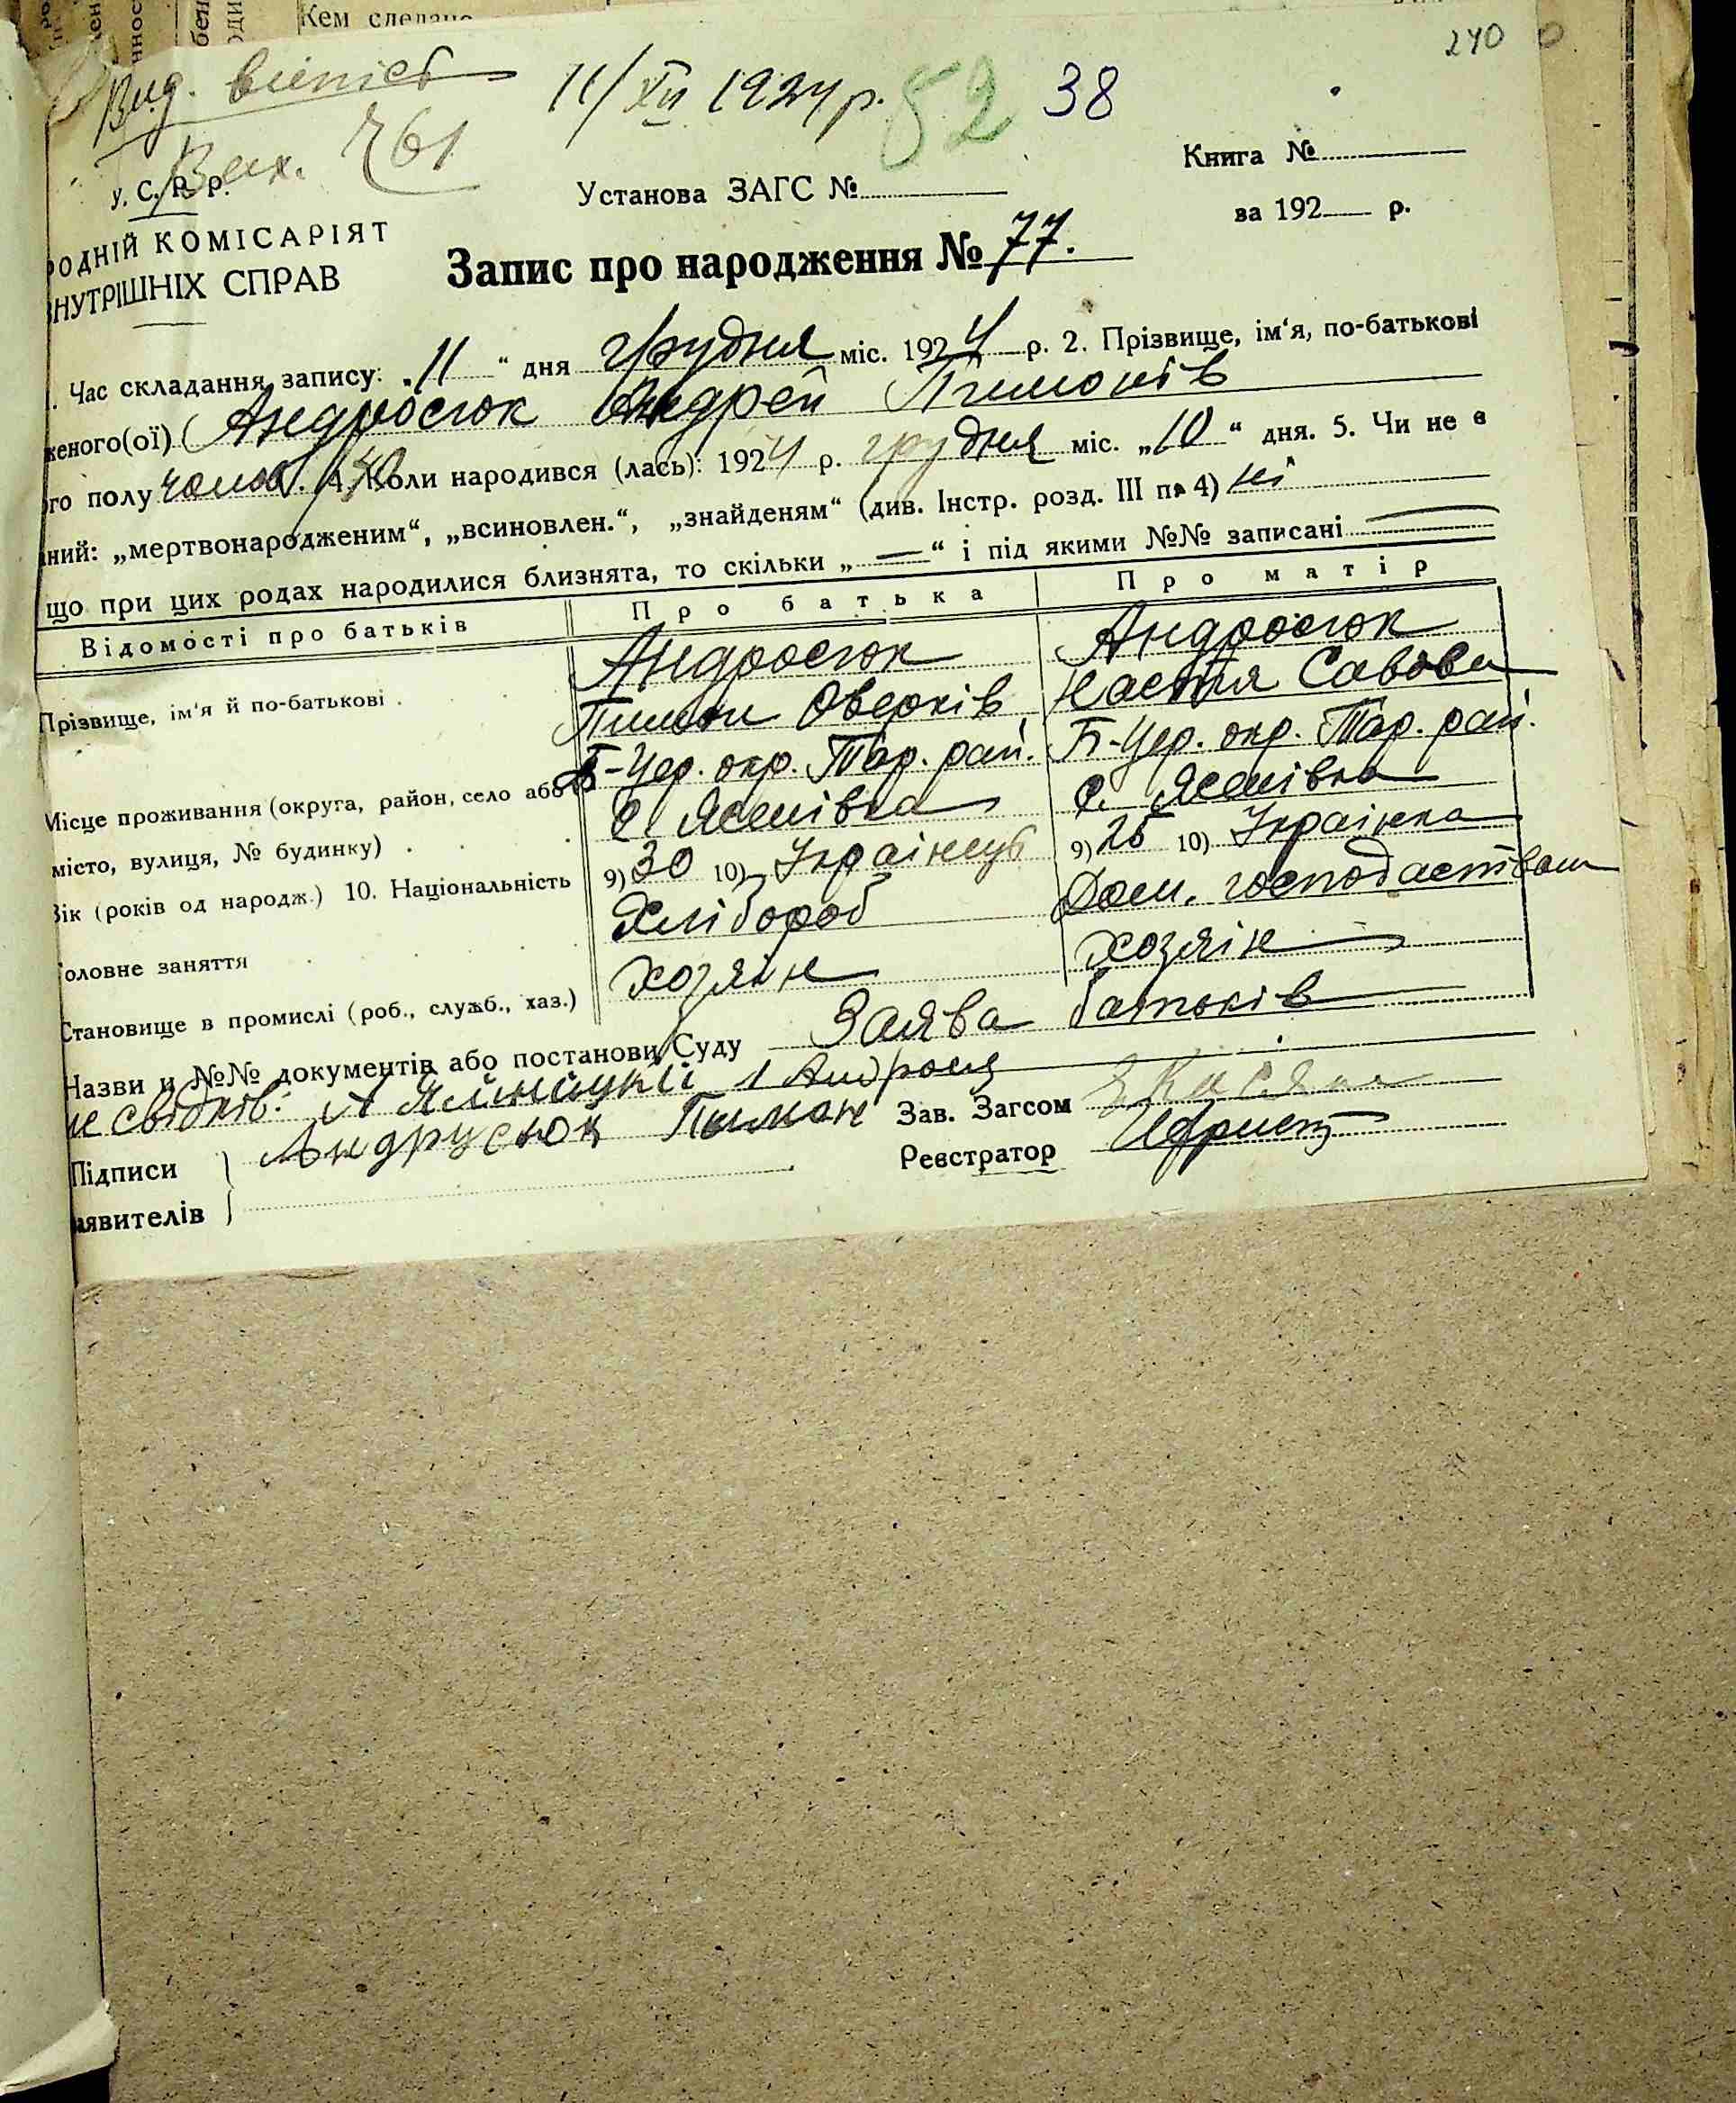 Кем сделано
240
Вид. випис
11/XII 1924 р. 52 38
Вих. 761
Книга №
У. С. Р. Р.
Установа ЗАГС №
за 192 р.
РОДНІЙ КОМІСАРІЯТ
ВНУТРІШНІХ СПРАВ
Запис про народження № 77.
1. Час складання запису: „11“ дня грудня міс. 1924 р. 2. Прізвище, ім‘я, по-батькові
женого(ої) Андросюк Андрей Пимонів
го полу чолов. 4. Коли народився (лась): 1924 р. грудня міс. „10“ дня. 5. Чи не є
ний: „мертвонародженим“, „всиновлен.“, „знайденям“ (див. Інстр. розд. III п. 4) ні
що при цих родах народилися близнята, то скільки „—“ і під якими №№ записані —
Відомості про батьків Про батька Про матір
Прізвище, ім‘я й по-батькові . Андросюк Андросюк
Пимон Оверків Настя Савова
Місце проживання (округа, район, село або Б-Цер. окр. Тар. рай. Б-Цер. окр. Тар. рай.
місто, вулиця, № будинку) . . С. Яснівка с. Яснівка
Вік (років од народж.) 10. Національність 9) 30 10) Українець 9) 25 10) Українка
Головне заняття Хлібороб Дом. господаством
Становище в промислі (роб., служб., хаз.) хозяін хозяін
Назви и №№ документів або постанови Суду Заява батьків
свідків: 1 Андрося
Підписи Андрусюк Пимон Зав. Загсом
аявителів Реєстратор